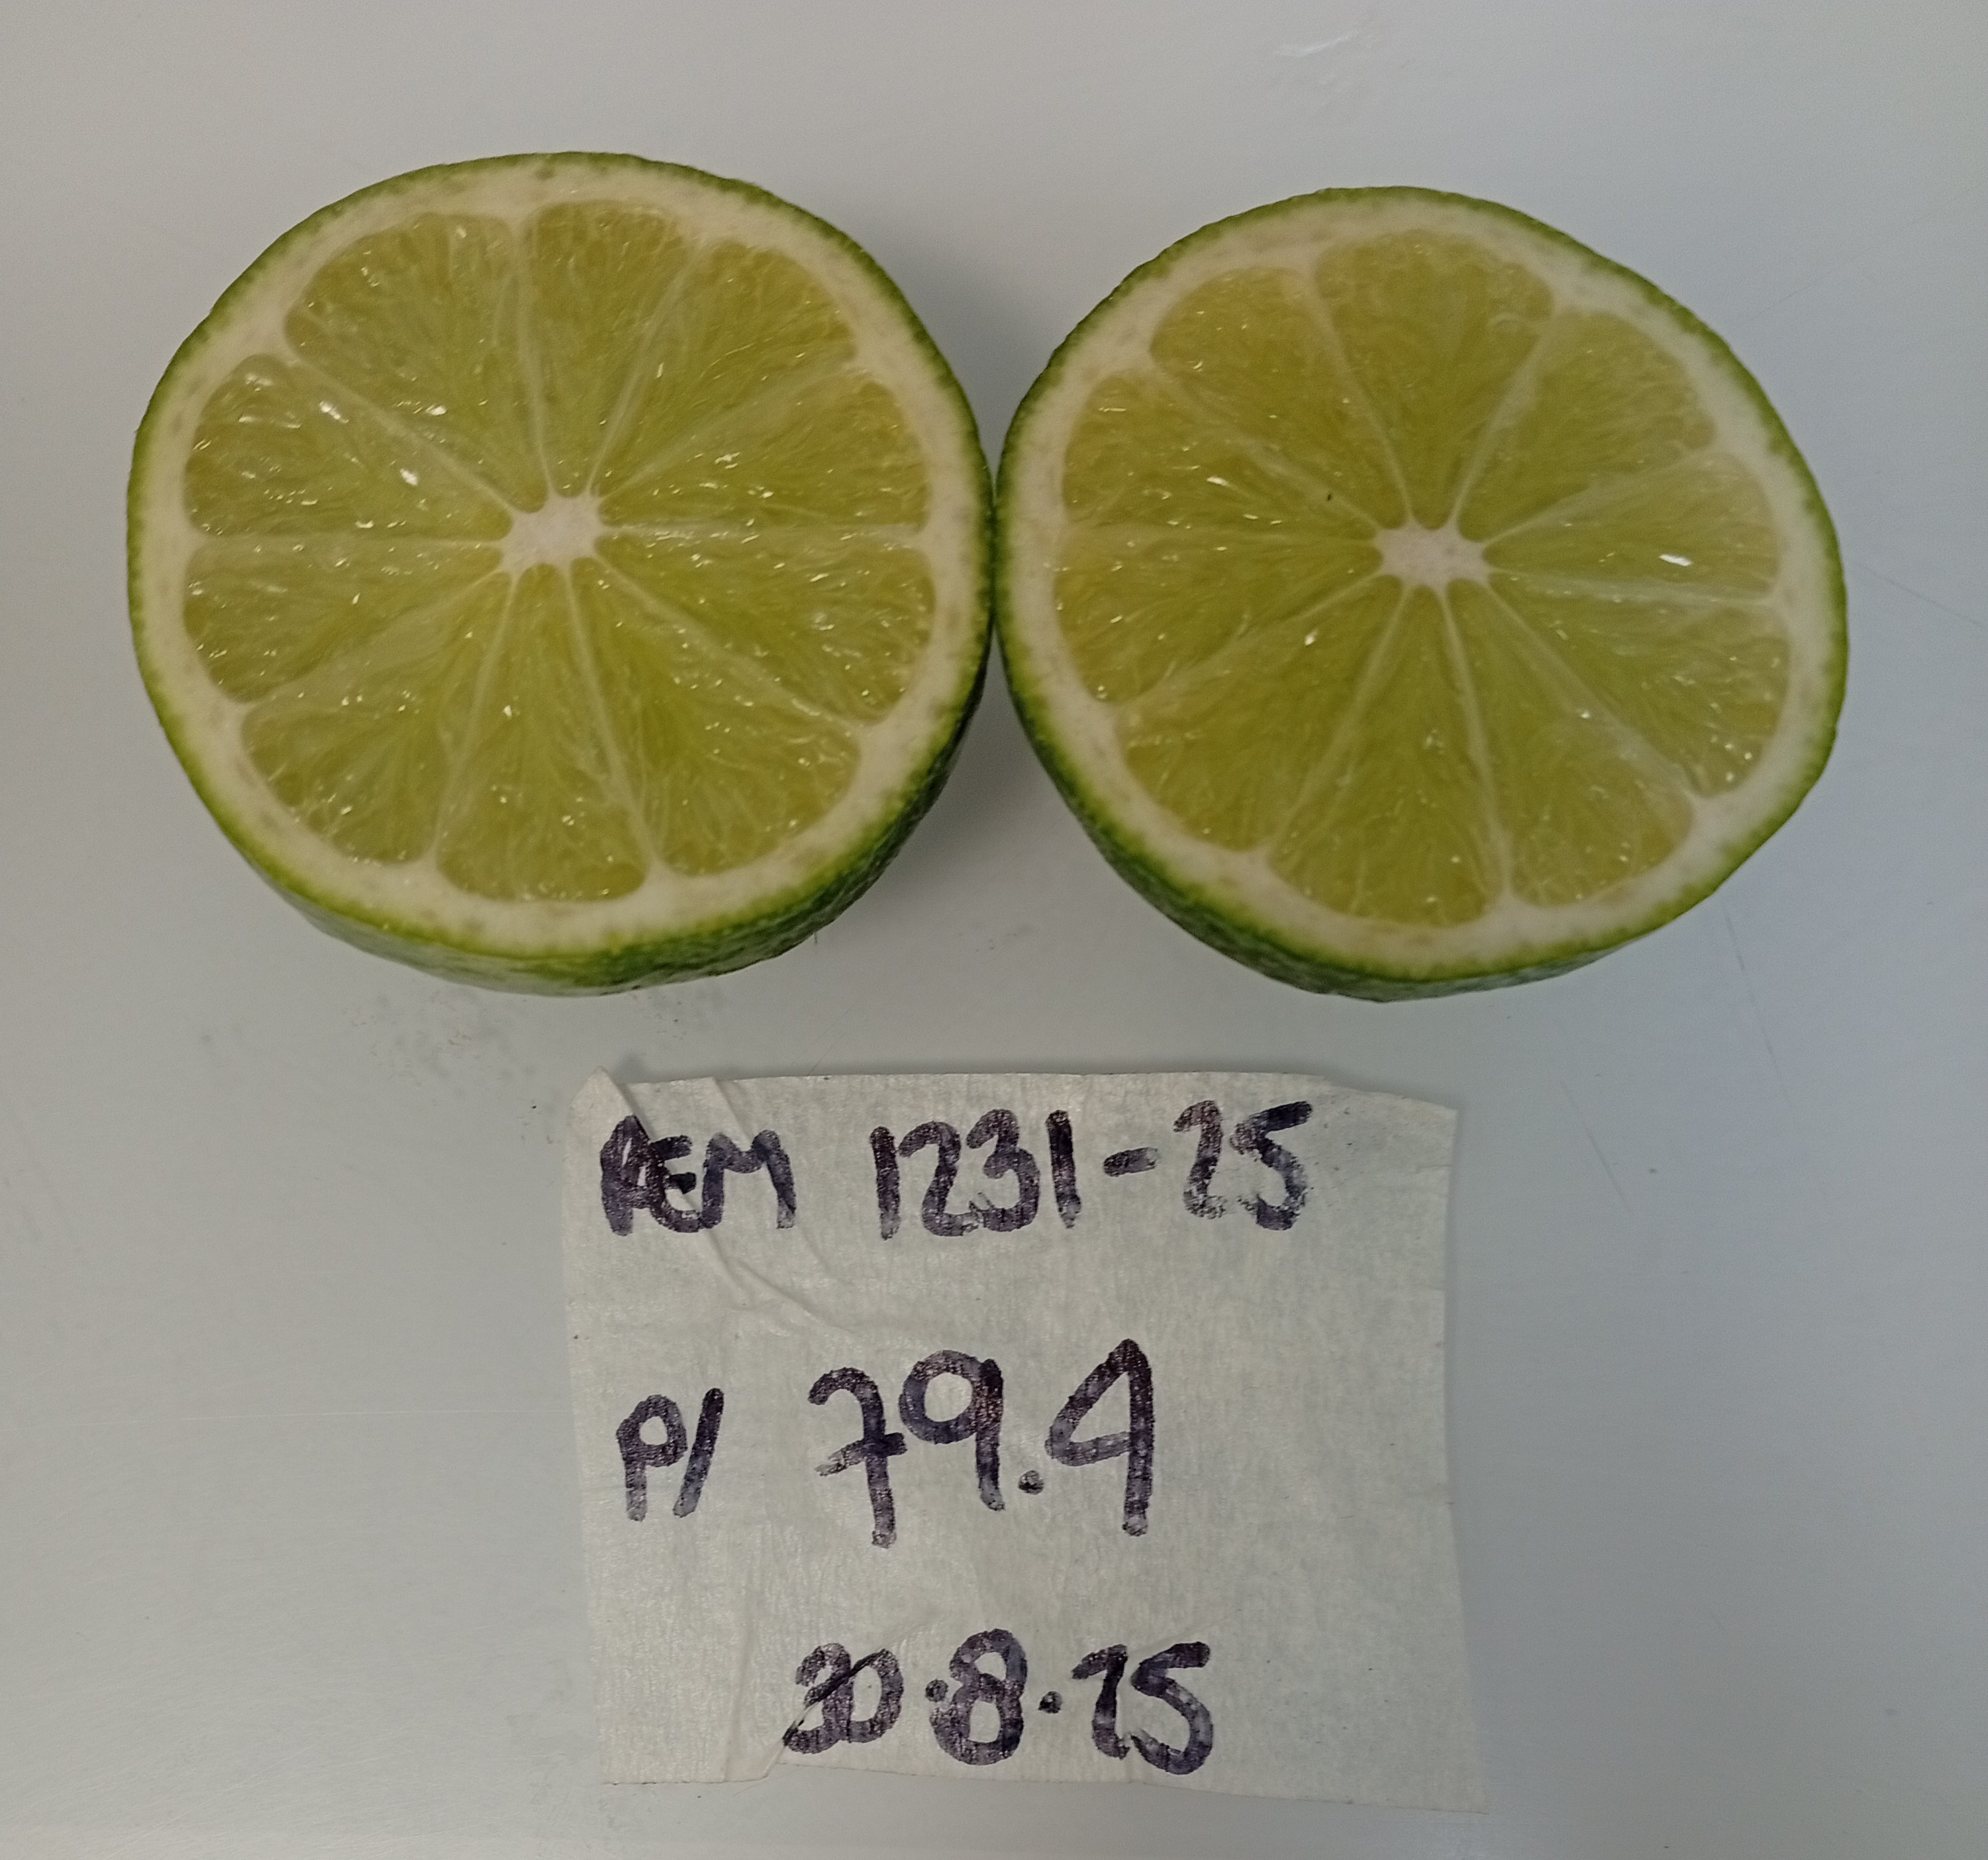 REM 1231-25
P/ 79.4
30.8.25